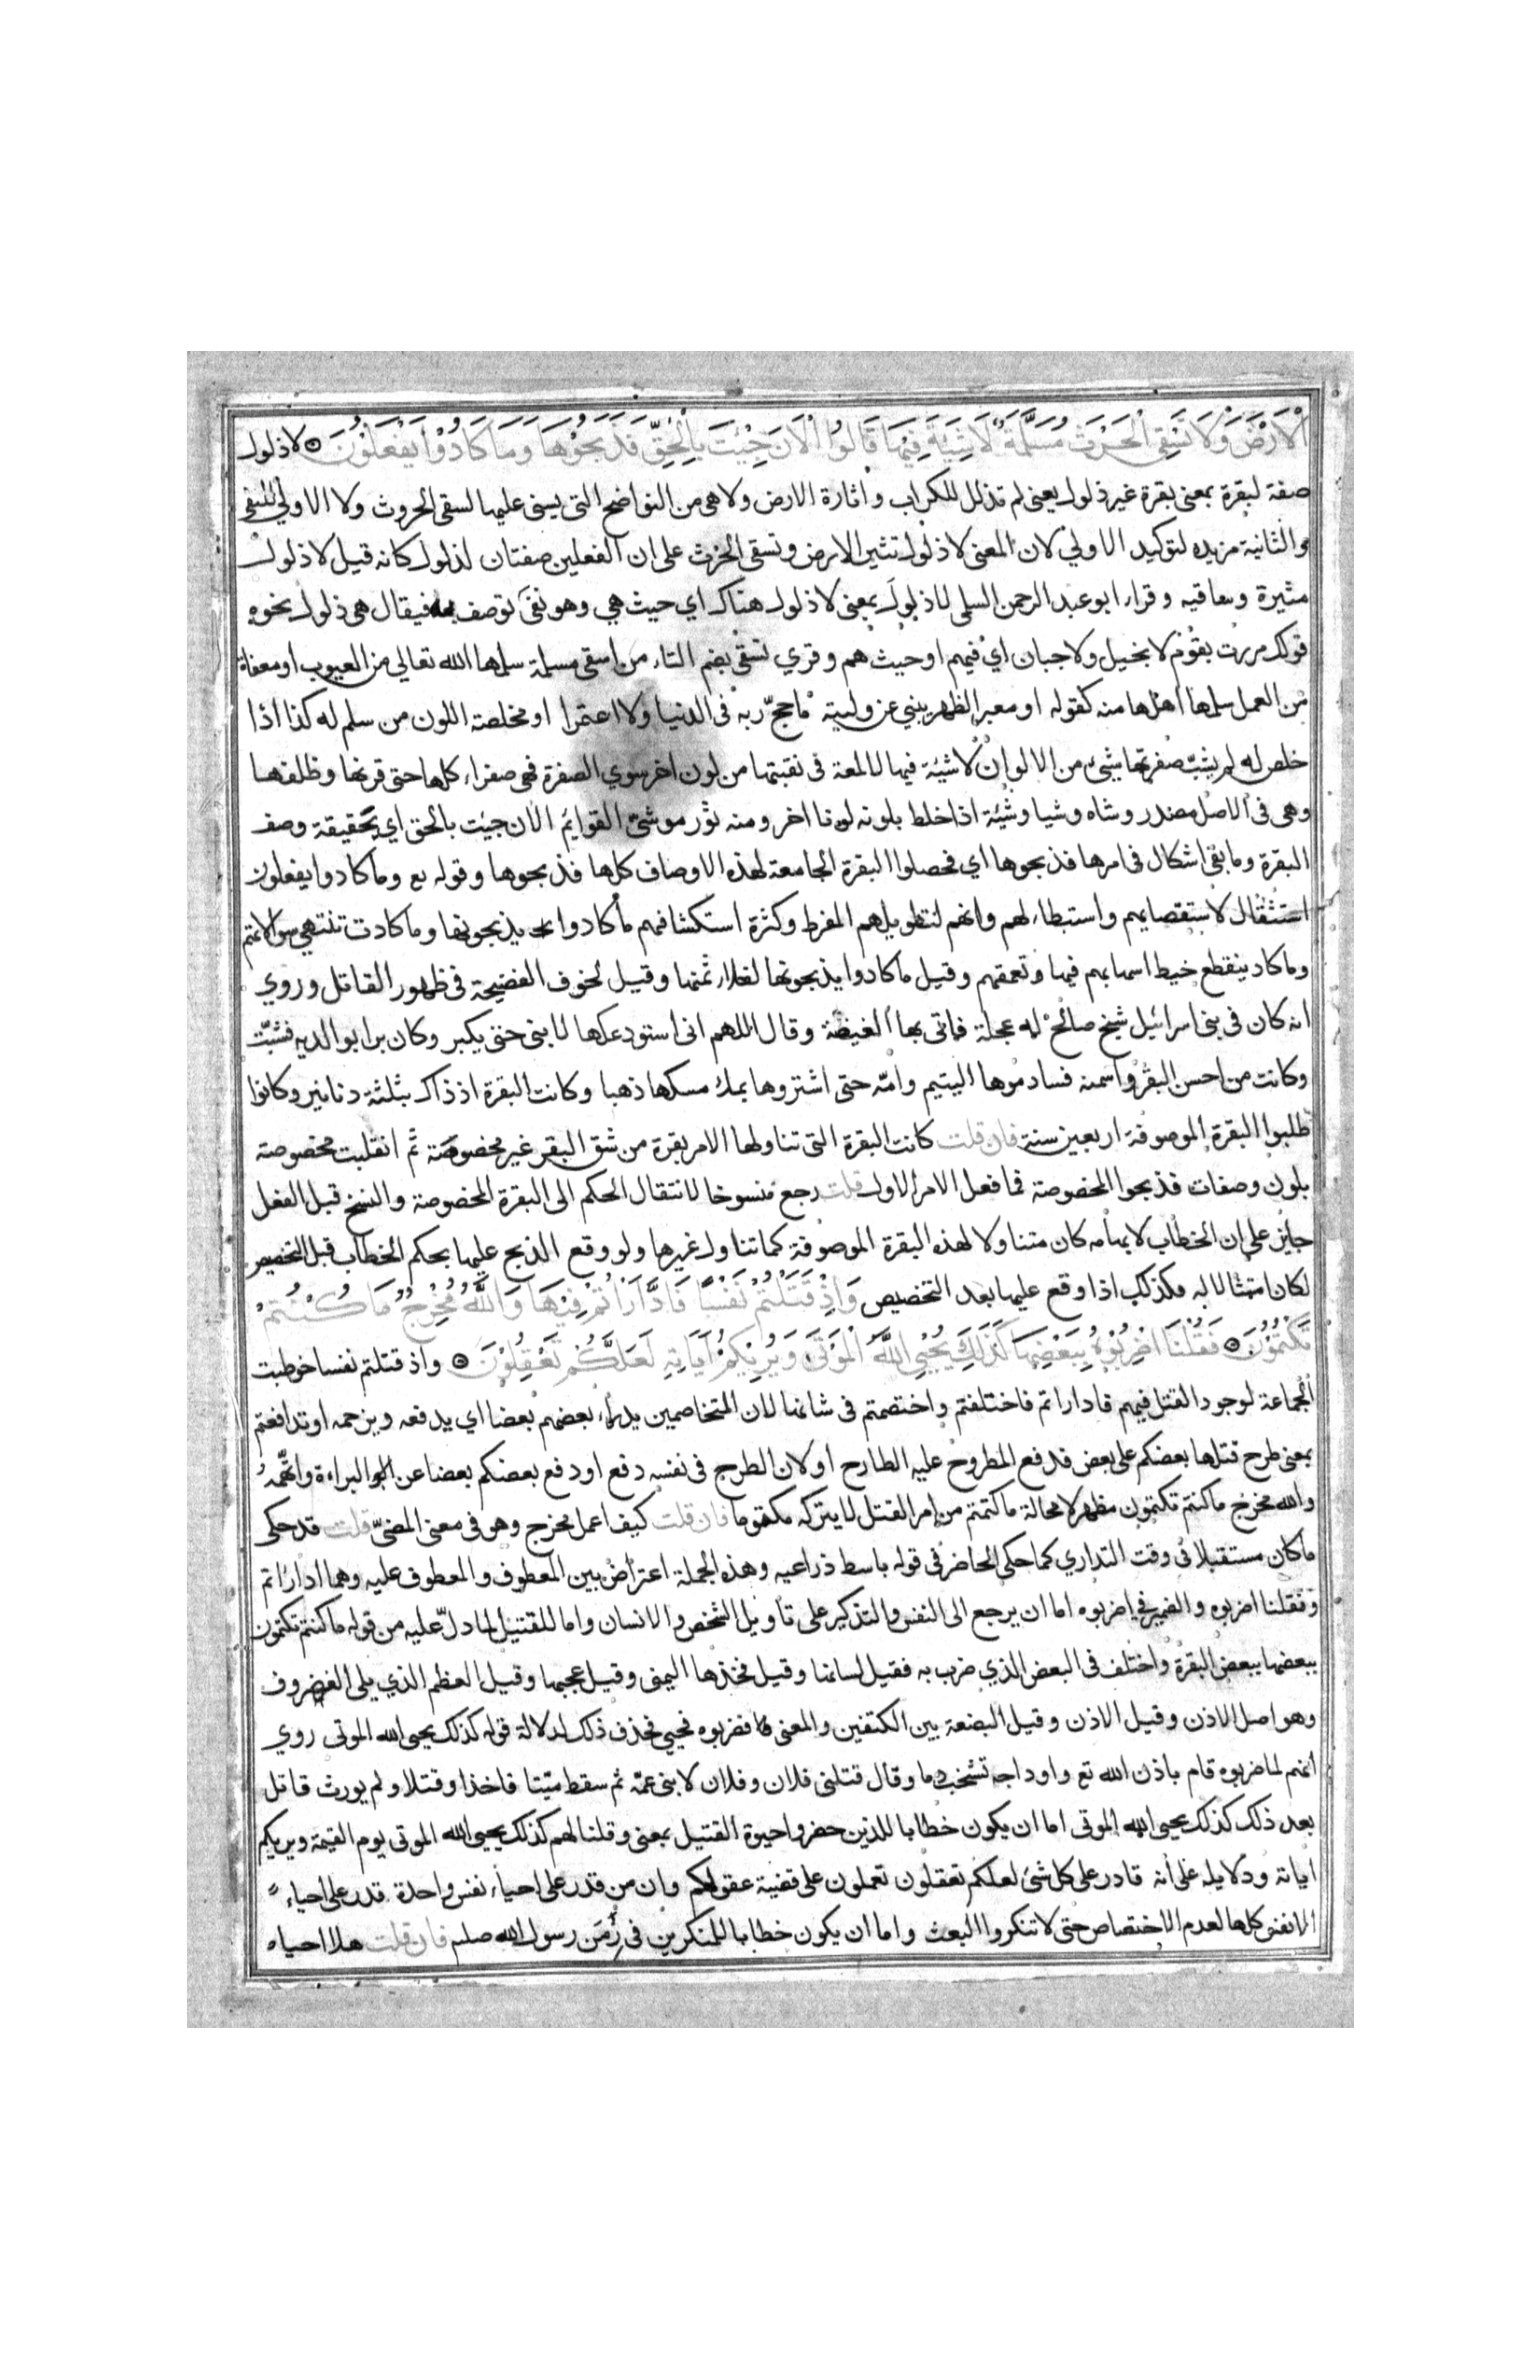 الْاَرْضَ وَلَا تَسْقِى الْحَرْثَ مُسَلَّمَةٌ لَاشِيَةَ فِيْهَا قَالُوا الْاٰنَ جِئْتَ بِالْحَقِّ فَذَبَحُوْهَا وَمَا كَادُوْا يَفْعَلُوْنَ ۝ لا ذلول
صفة لبقرة بمعنى بقرة غير ذلول يعنى لم تذلل للكراب واثارة الارض ولا هى من النواضح التى يسنى عليها لسقى الحروث ولا الاولي للنفى
والثانية مزيده لتوكيد الاولي لان المعنى لا ذلول تثير الارض وتسقى الحرث على ان الفعلين صفتان لذلول كانه قيل لا ذلول
مثيرة وساقيه وقراء ابو عبد الرحمن السلمى لا ذلول بمعنى لا ذلول هناك اي حيث هي وهو نفى لوصف به فيقال هى ذلول نحوه
قولك مررت بقوم لا بخيل ولا جبان اي فيهم او حيث هم وقري تسقى بضم التاء من اسقى مسلمة سلمها الله تعالي من العيوب او معفاة
من العمل سلمها اهلها منه كقوله او معبر الظهر ينبي عن وليته ما حج ربه فى الدنيا ولا اعتمرا او مخلصة اللون من سلم له كذا اذا
خلص له لم يشب صفرتها شئ من الالوان لا شية فيها لا لمعة فى نقبتها من لون اخر سوي الصفرة فهى صفراء كلها حتى قرنها وظلفها
وهى فى الاصل مصدر وشاه وشيا وشية اذا خلط بلونه لونا اخر ومنه ثور موشى القوايم الان جئت بالحق اي بحقيقة وصف
البقرة وما بقى اشكال فى امرها فذبحوها اي فحصلوا البقرة الجامعة لهذه الاوصاف كلها فذبحوها وقوله تع وما كادوا يفعلون
استثقال لاستقصايهم واستبطاء لهم وانهم لتطويلهم المفرط وكثرة استكشافهم ما كادوا يذبحونها وما كادت تنتهي سوالاتهم
وما كاد ينقطع خيط اسهابهم فيها وتعمقهم وقيل ما كادوا يذبحونها لغلاء ثمنها وقيل لخوف الفضيحة فى ظهور القاتل وروي
انه كان فى بنى اسرائيل شيخ صالح له عجلة فاتى بها الغيضة وقال اللهم انى استودعكها لابنى حتى يكبر وكان برا بوالديه فشبت
وكانت من احسن البقر واسمنه فساوموها اليتيم وامه حتى اشتروها بملء مسكها ذهبا وكانت البقرة اذ ذاك بثلثة دنانير وكانوا
طلبوا البقرة الموصوفة اربعين سنة فان قلت كانت البقرة التى تناولها الامر بقرة من شق البقر غير مخصوصة ثم انقلبت مخصوصة
بلون وصفات فذبحوا المخصوصة فما فعل الامر الاول قلت رجع منسوخا لانتقال الحكم الى البقرة المخصوصة والنسخ قبل الفعل
جايز على ان الخطاب لابهامه كان متناولا لهذه البقرة الموصوفة كما تناول غيرها ولو وقع الذبح عليها بحكم الخطاب قبل التخصيص
لكان امتثالا له فكذلك اذا وقع عليها بعد التخصيص وَاِذْ قَتَلْتُمْ نَفْسًا فَادَّارَأْتُمْ فِيْهَا وَاللّٰهُ مُخْرِجٌ مَا كُنْتُمْ
تَكْتُمُوْنَ ۝ فَقُلْنَا اضْرِبُوْهُ بِبَعْضِهَا كَذٰلِكَ يُحْيِى اللّٰهُ الْمَوْتٰى وَيُرِيْكُمْ اٰيَاتِهٖ لَعَلَّكُمْ تَعْقِلُوْنَ ۝ واذ قتلتم نفسا خوطبت
الجماعة لوجود القتل فيهم فاداراتم فاختلفتم واختصمتم فى شانها لان المتخاصمين يدراء بعضهم بعضا اي يدفعه ويزحمه او تدافعتم
بمعنى طرح قتلها بعضكم على بعض فدفع المطروح عليه الطارح او لان الطرح فى نفسه دفع او دفع بعضكم بعضا عن البراءة واتهمه
والله مخرج ما كنتم تكتمون مظهر لا محالة ما كتمتم من امر القتل لا يتركه مكتوما فان قلت كيف اعمل مخرج وهو فى معنى المضىّ قلت قد حكى
ما كان مستقبلا فى وقت التداري كما حكى الحاضر فى قوله باسط ذراعيه وهذه الجملة اعتراض بين المعطوف والمعطوف عليه وهما اداراتم
وفقلنا اضربوه والضمير فى اضربوه اما ان يرجع الى النفس والتذكير على تاويل الشخص والانسان واما للقتيل لما دل عليه من قوله ما كنتم تكتمون
ببعضها ببعض البقرة واختلف فى البعض الذي ضرب به فقيل لسانها وقيل فخذها اليمنى وقيل عجبها وقيل العظم الذي يلى الغضروف
وهو اصل الاذن وقيل الاذن وقيل البضعة بين الكتفين والمعنى فضربوه فحيي فحذف ذلك لدلالة قوله كذلك يحيى الله الموتى روي
انهم لما ضربوه قام باذن الله تع واوداجه تشخب دما وقال قتلنى فلان وفلان لابنى عمه ثم سقط ميتا فاخذا وقتلا ولم يورث قاتل
بعد ذلك كذلك يحيى الله الموتى اما ان يكون خطابا للذين حضروا حيوة القتيل بمعنى وقلنا لهم كذلك يحيى الله الموتى يوم القيمة ويريكم
اياته ودلايله على أنه قادر على كل شئ لعلكم تعقلون تعملون على قضية عقولكم وان من قدر على احياء نفس واحدة قدر على احياء
الانفس كلها لعدم الاختصاص حتى لا تنكروا البعث واما ان يكون خطابا للمنكرين فى زمن رسول الله صلىم فان قلت هلا احياه